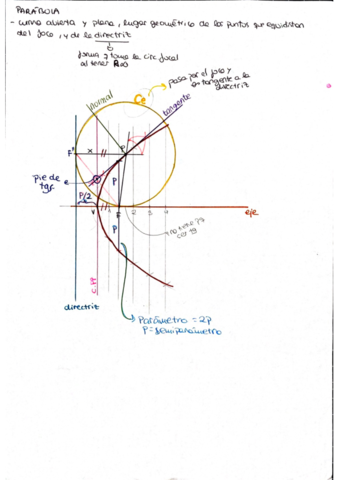 PARÁBOLA
- curva abierta y plana, lugar geométrico de los puntos que equidistan
del foco, y de la directriz
forma y toma la circ. focal
al tener R=∞
pasa por el foco y
es tangente a la
directriz
normal
tangente
F'
x
P
Pie de
tg.
e
P
P/2
V
F
1
2
3
4
eje
P
directriz
c.pp
Parámetro = 2P
P = semiparámetro